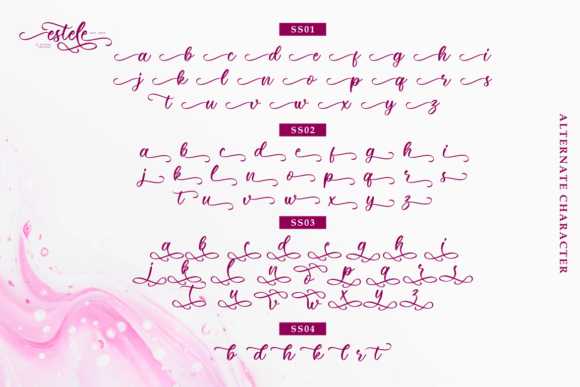 estele
SS01
a b c d e f g h i
j k l n o p q r s
t u v w x y z
SS02
a b c d e f g h i
j k l n o p q r s
t u v w x y z
SS03
a b c d e f g h i
j k l n o p q r s
t y v w x y z
SS04
b d h k l r t
ALTERNATE CHARACTER